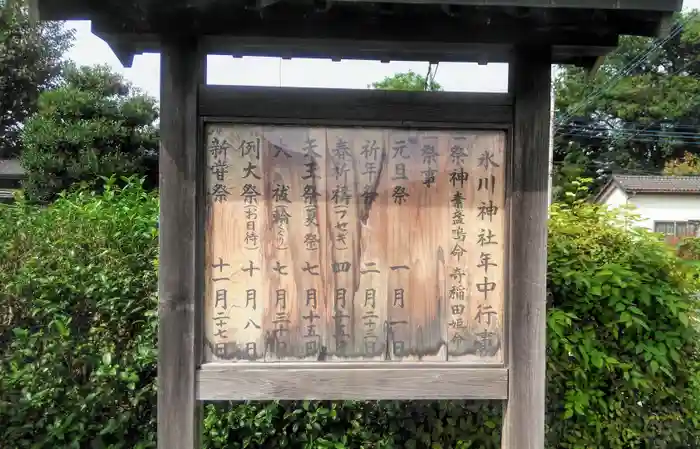 氷川神社年中行事
一祭神 素盞嗚命 奇稲田姫命
一祭事
元旦祭 一月一日
祈年祭 二月二十二日
春祈祷(フセギ) 四月十五日
天王祭(夏祭) 七月十五日
大祓(輪くぐり) 七月三十日
例大祭(お日待) 十月八日
新嘗祭 十一月二十七日